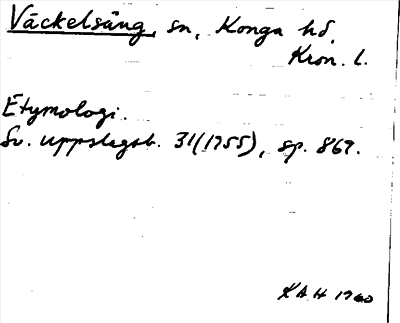 Väckelsång, sn, Konga hd,
Kron. l.
Etymologi.
Sv. uppslagsb. 31(1955), sp. 869.
KAH 1960